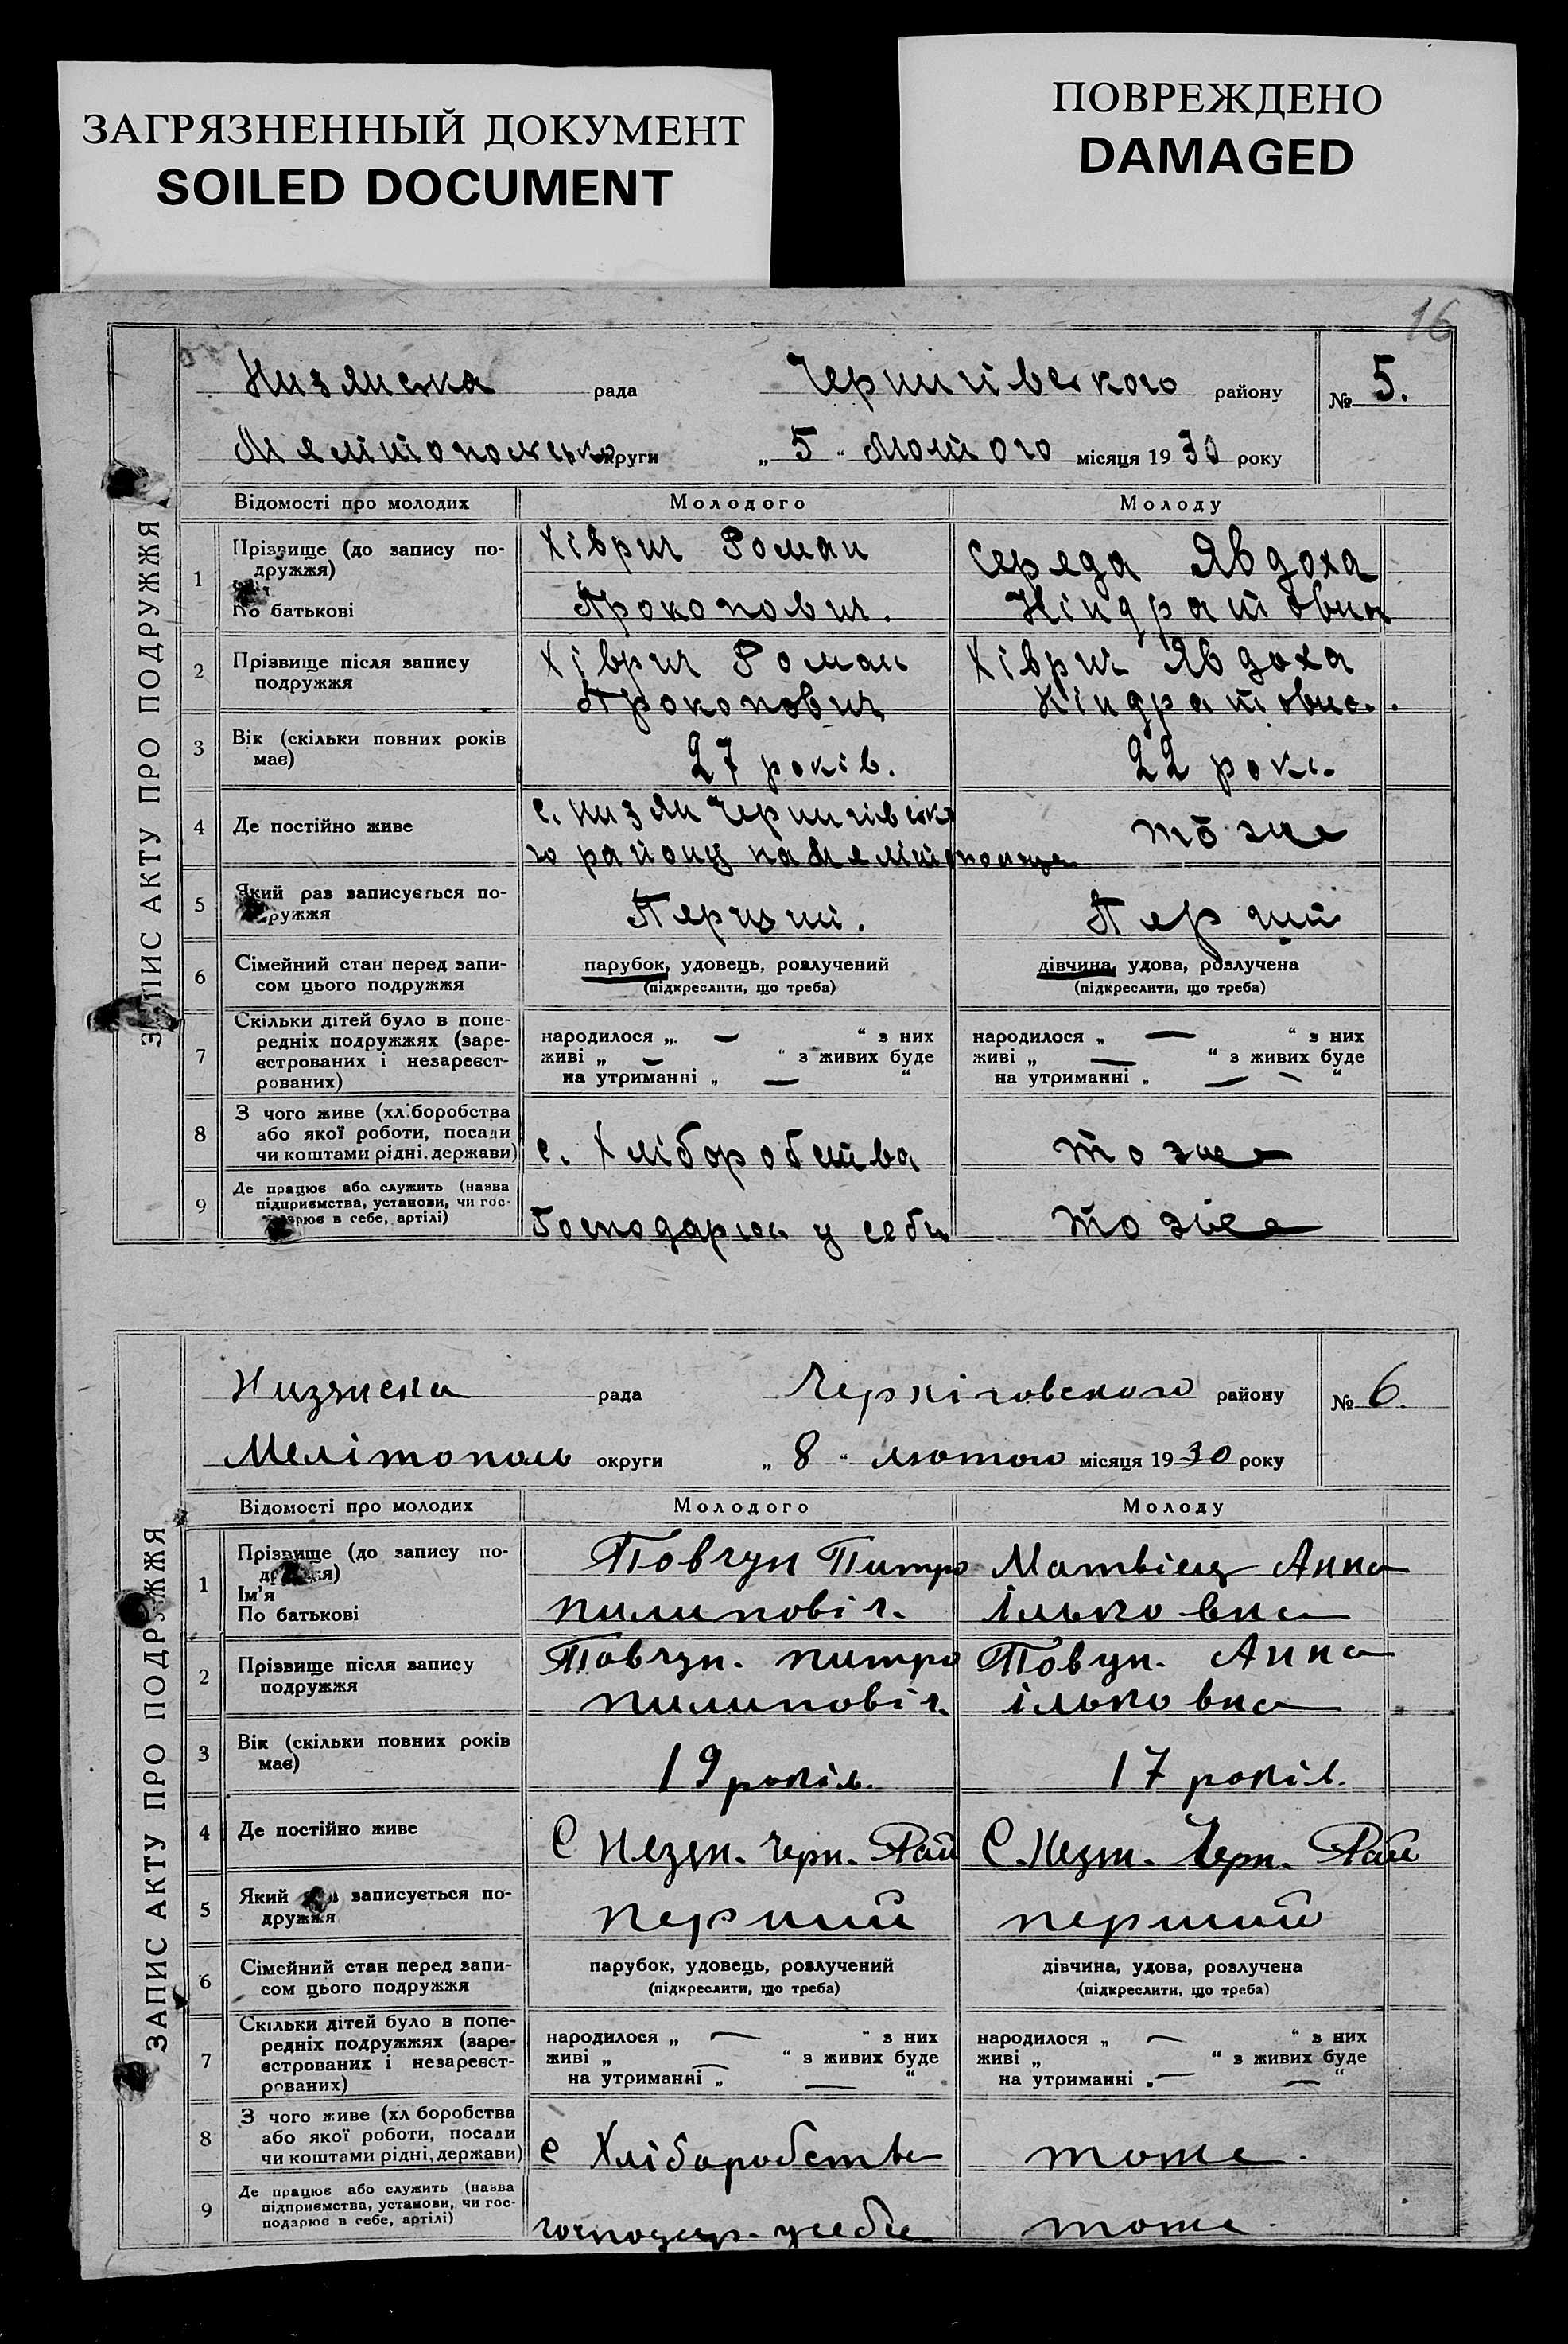 ЗАГРЯЗНЕННЫЙ ДОКУМЕНТ
SOILED DOCUMENT
ПОВРЕЖДЕНО
DAMAGED
16
ЗАПИС АКТУ ПРО ПОДРУЖЖЯ
Низянська рада Чернигівского району № 5.
округи „ 5 “ Лютого місяця 1930 року
Відомості про молодих Молодого Молоду
1 Прізвище (до запису по-
дружжя)
По батькові
Хіврич Роман
Прокопович.
Середа Явдоха
Кіндратовна
2 Прізвище після запису
подружжя
Хіврич Роман
Прокопович
Хіврич Явдоха
Кіндратовна.
3 Вік (скільки повних років
має)
27 років.
22 роки.
4 Де постійно живе
с. Низяни Чернигівсько
го району на Мелітопольще
то же
5 Який раз записується по-
дружжя
Перший.
Перший
6 Сімейний стан перед запи-
сом цього подружжя
парубок, удовець, розлучений
(підкреслити, що треба)
дівчина, удова, розлучена
(підкреслити, що треба)
7 Скільки дітей було в попе-
редніх подружжях (заре-
єстрованих і незареєст-
рованих)
народилося „ — “ з них
живі „ — “ з живих буде
на утриманні „ — “
народилося „ — “ з них
живі „ — “ з живих буде
на утриманні „ — — “
8 З чого живе (хліборобства
або якої роботи, посади
чи коштами рідні. держави)
с. Хліборобства
то же
9 Де працює або служить (назва
підприємства, установи, чи гос-
подарює в себе, артілі)
Господарює у себе
то же
ЗАПИС АКТУ ПРО ПОДРУЖЖЯ
Низянска рада Черніговского району № 6.
Мелітополь округи „ 8 “ лютого місяця 1930 року
Відомості про молодих Молодого Молоду
1 Прізвище (до запису по-
дружжя)
Ім’я
По батькові
Товчун Питро
пилиповіч.
Матвіец Анна
ільковна
2 Прізвище після запису
подружжя
Товчун. питро
пилиповіч.
Товчун. Анна
ільковна
3 Вік (скільки повних років
має)
19 років.
17 років.
4 Де постійно живе
С Незян. Черн. Рай
С. Незян. Черн. Рай
5 Який раз записується по-
дружжя
перший
перший
6 Сімейний стан перед запи-
сом цього подружжя
парубок, удовець, розлучений
(підкреслити, що треба)
дівчина, удова, розлучена
(підкреслити, що треба)
7 Скільки дітей було в попе-
редніх подружжях (заре-
єстрованих і незареєст-
рованих)
народилося „ — “ з них
живі „ — “ з живих буде
на утриманні „ — “
народилося „ — “ з них
живі „ “ з живих буде
на утриманні „ — — “
8 З чого живе (хл боробства
або якої роботи, посади
чи коштами рідні, держави)
с Хліборобства
тоже.
9 Де працює або служить (назва
підприємства, установи, чи гос-
подарює в себе, артілі)
господар. у себе
тоже.